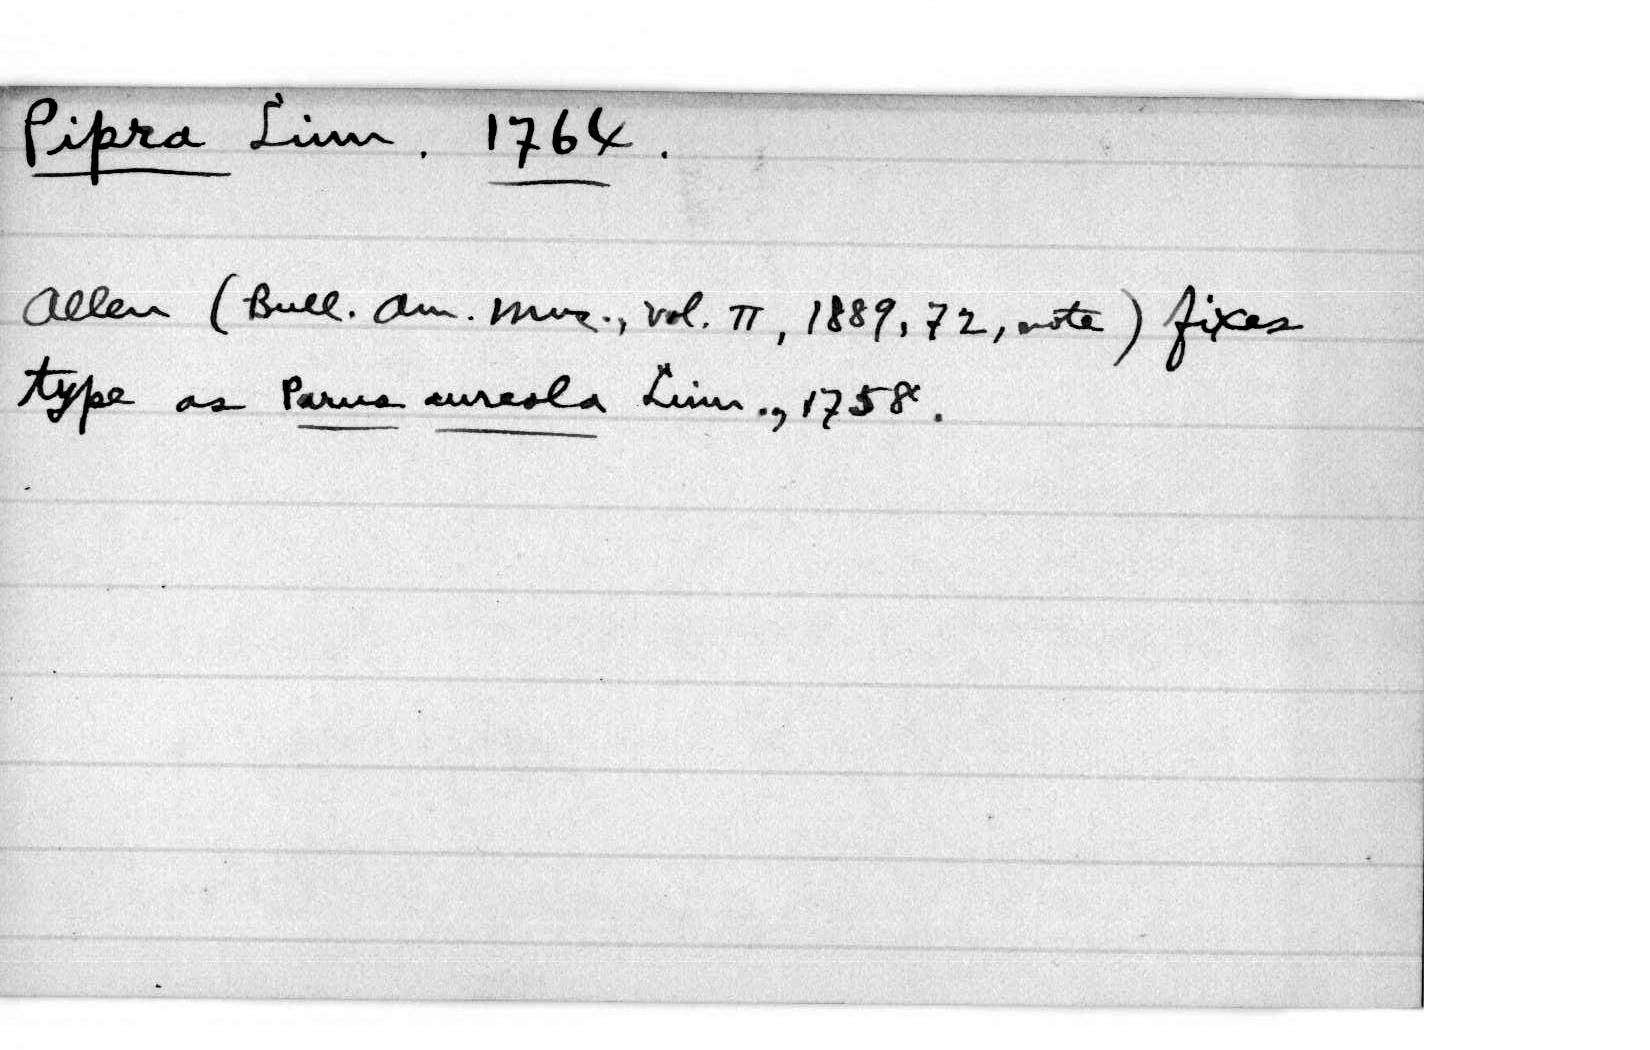 Pipra Linn. 1764.
Allen (Bull. Am. Mus., vol. II, 1889, 72, note) fixes
type as Parus aureola Linn., 1758.